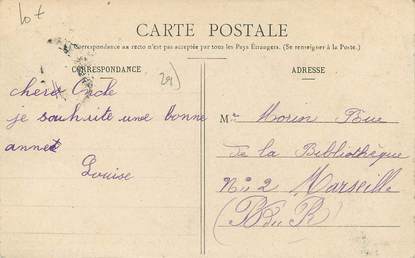 10f
CARTE POSTALE
La Correspondance au recto n'est pas acceptée par tous les Pays Étrangers. (Se renseigner à la Poste.)
CORRESPONDANCE
29)
ADRESSE
cher Oncle
je souhaite une bonne
anneé
Louise
Mr Morin Rue
de la Bibliothèque
No 2 Marseille
(B du R)